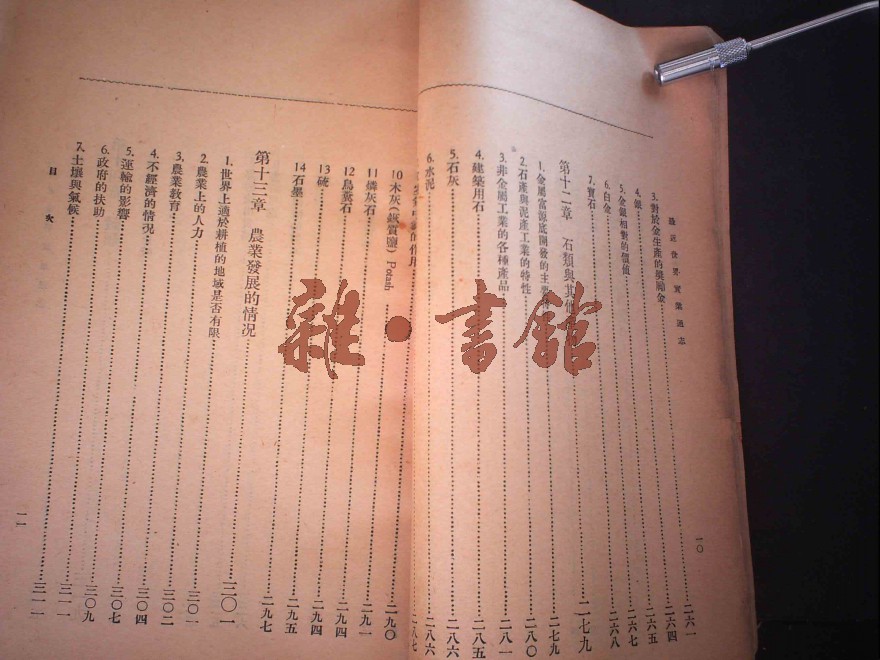 最近世界實業通志
一〇
3. 對於金生產的獎勵金 二六一
4. 銀 二六四
5. 金銀相對的價值 二六五
6. 白金 二六七
7. 寶石 二六八
第十二章 石類與其他 二七九
1. 金屬富源底開發的主要 二七九
2. 石產與泥產工業的特性 二八〇
3. 非金屬工業的各種產品 二八一
4. 建築用石 二八五
5. 石灰 二八六
6. 水泥 二八六
二八七
的作用 二九〇
10 木灰(鹹質鹽) Potash 二九一
11 燐灰石 二九四
12 鳥糞石 二九四
13 硫 二九五
14 石墨 二九七
第十三章 農業發展的情況 三〇一
1. 世界上適於耕植的地域是否有限 三〇一
2. 農業上的人力 三〇二
3. 農業教育 三〇四
4. 不經濟的情況 三〇七
5. 運輸的影響 三〇九
6. 政府的扶助 三一一
7. 土壤與氣候 三一一
目次
一一
雜·書館